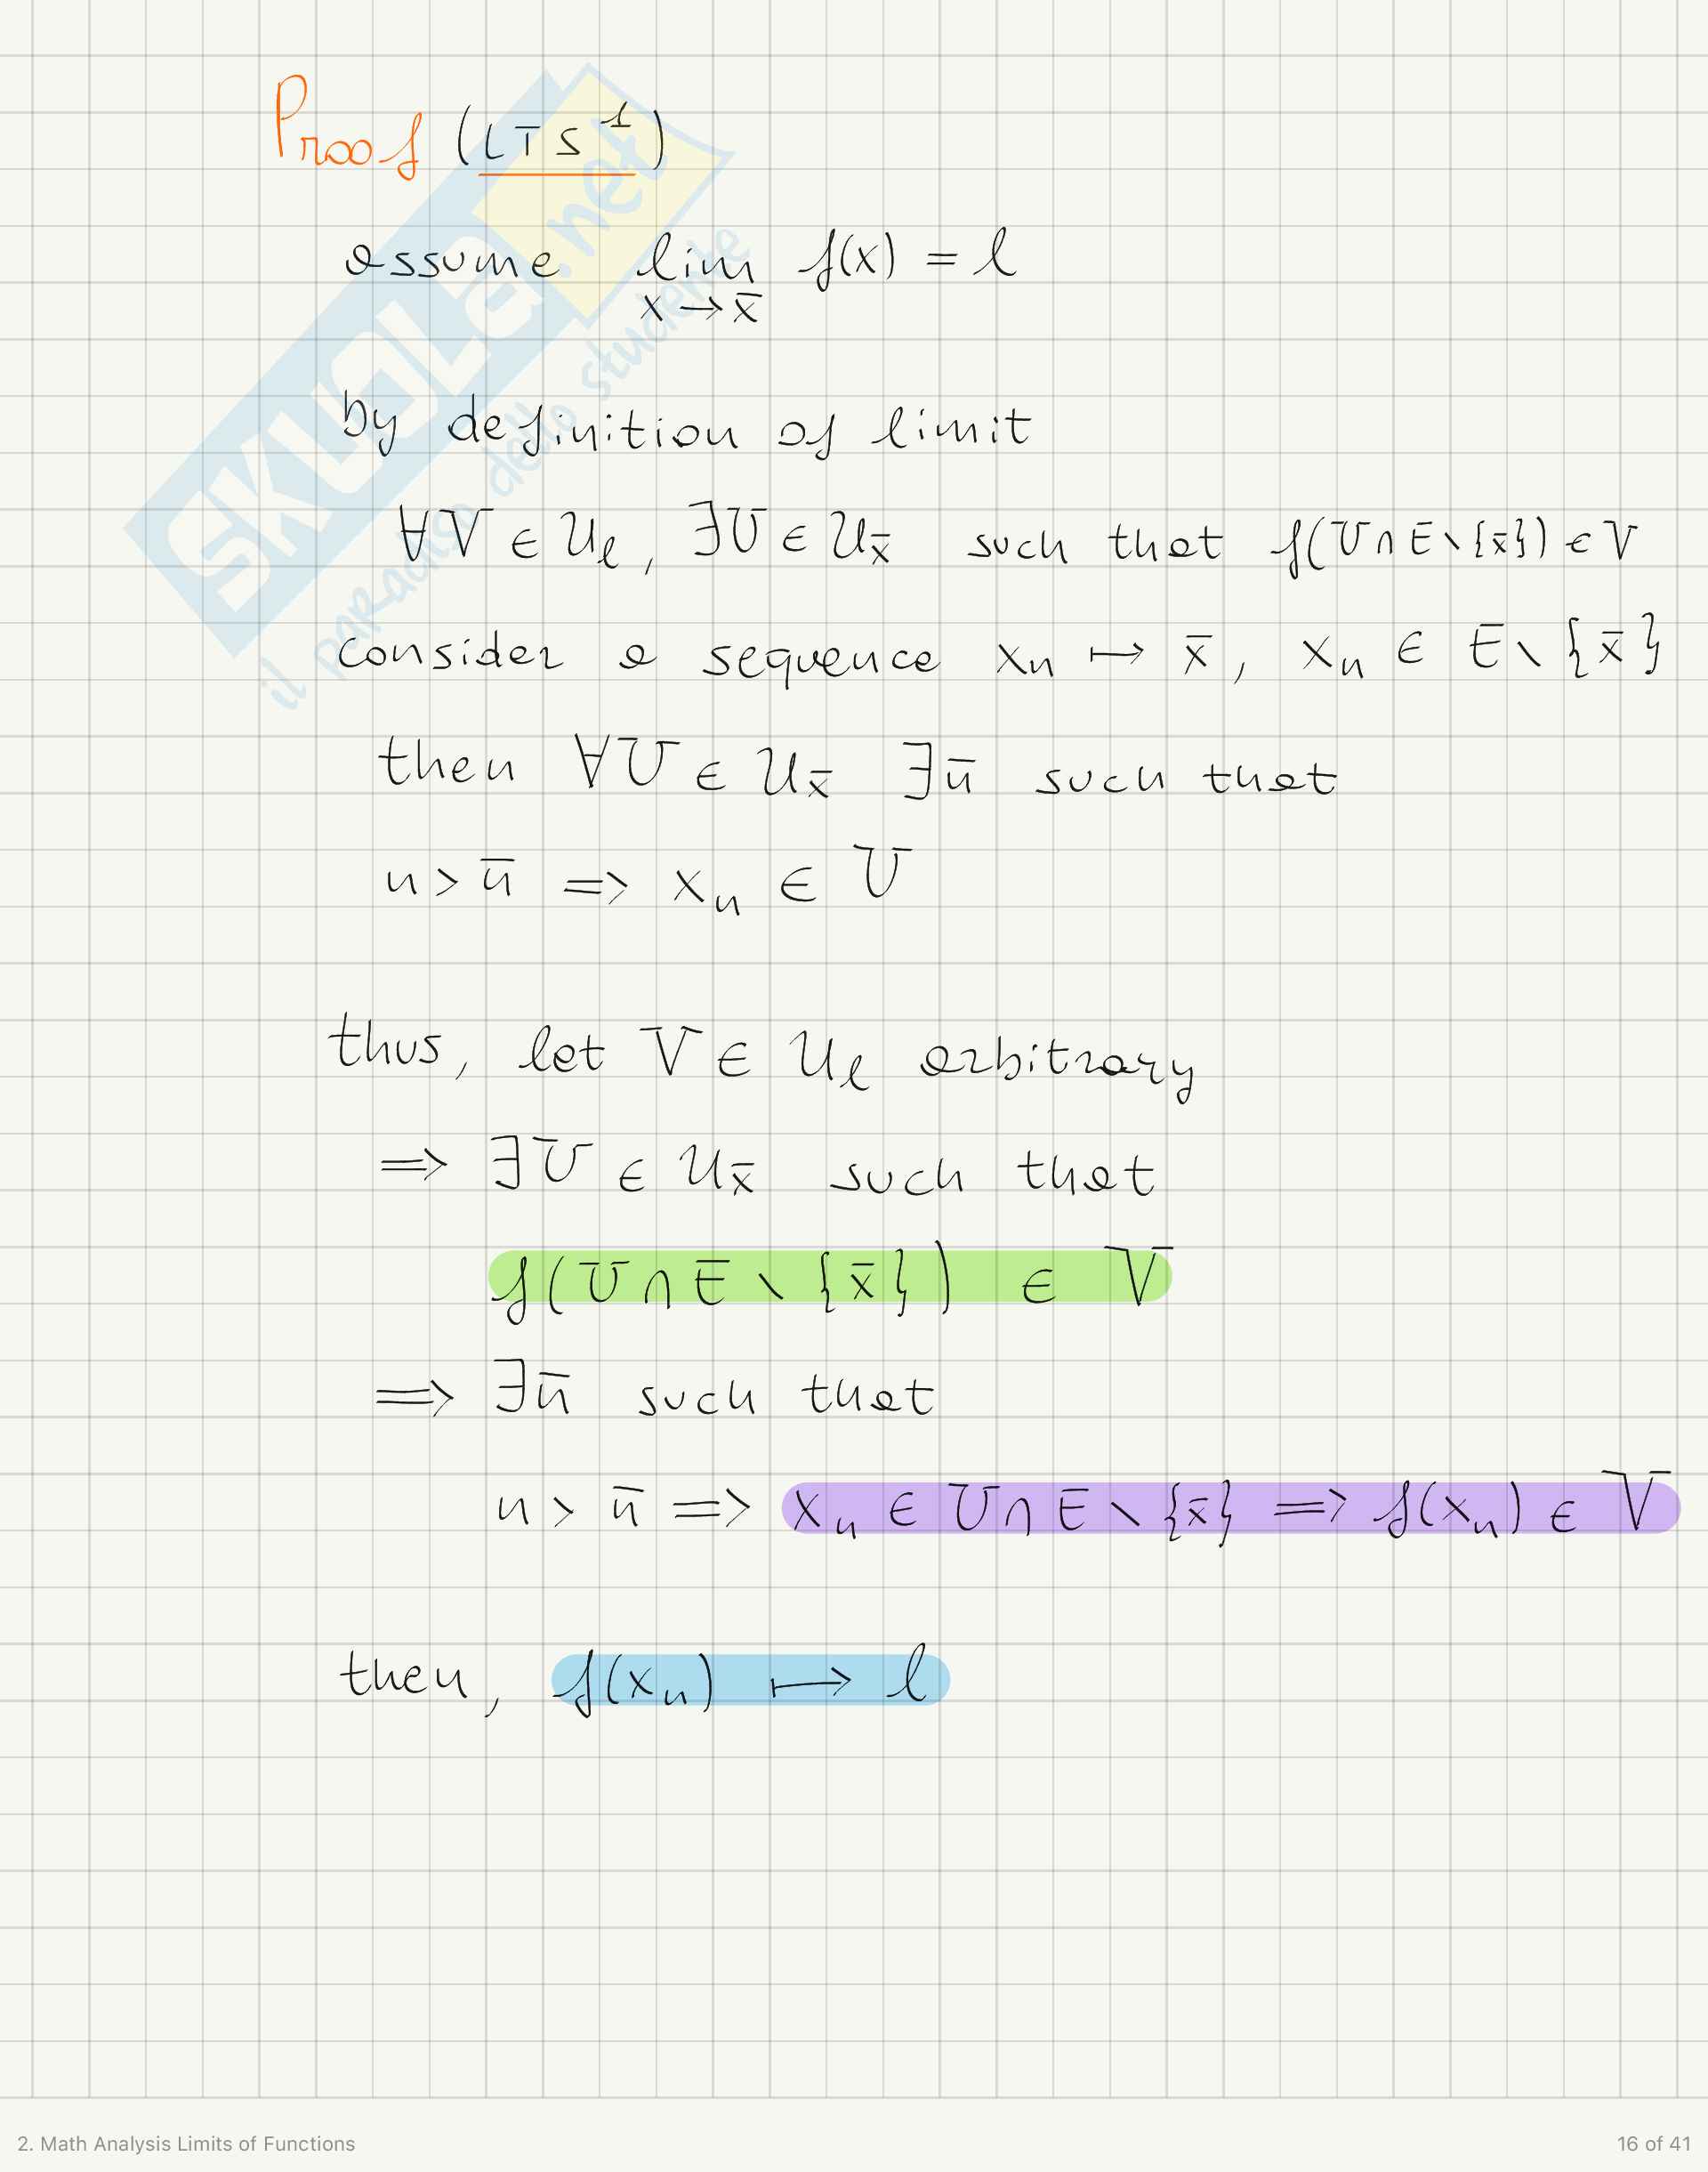 Proof (LTS¹)
assume lim f(x) = l
x → x̄
by definition of limit
∀V ∈ U_l, ∃U ∈ U_x̄ such that f(U ∩ E \ {x̄}) ∈ V
consider a sequence x_n ↦ x̄, x_n ∈ E \ {x̄}
then ∀U ∈ U_x̄ ∃n̄ such that
n > n̄ => x_n ∈ U
thus, let V ∈ U_l arbitrary
=> ∃U ∈ U_x̄ such that
f(U ∩ E \ {x̄}) ∈ V
=> ∃n̄ such that
n > n̄ => x_n ∈ U ∩ E \ {x̄} => f(x_n) ∈ V
then, f(x_n) ↦ l
SKUOLA.net
il paradiso dello studente
2. Math Analysis Limits of Functions
16 of 41